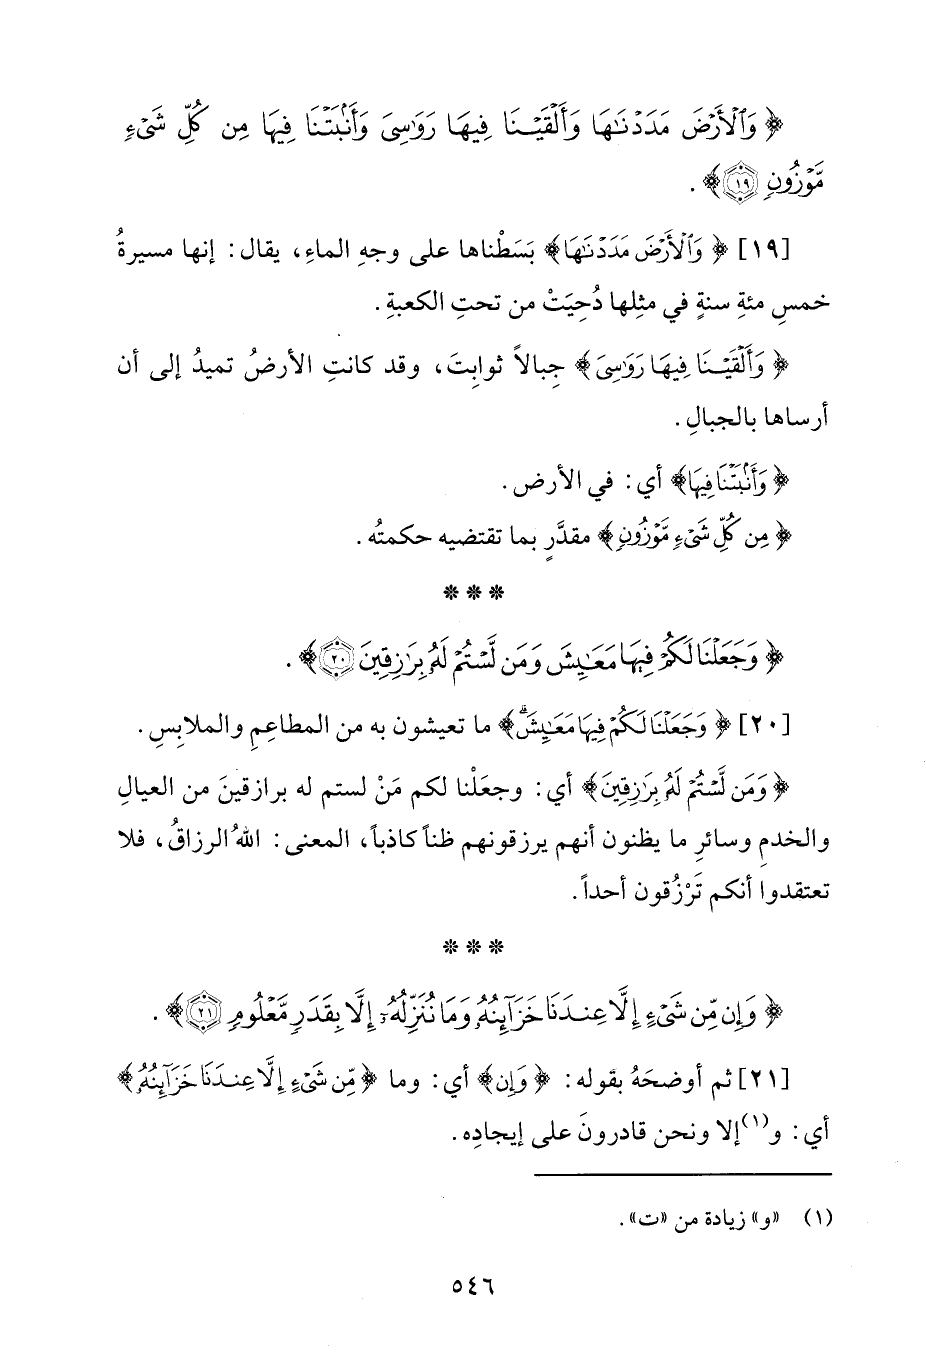 ﴿ وَٱلْأَرْضَ مَدَدْنَـٰهَا وَأَلْقَيْـنَا فِيهَا رَوَٰسِىَ وَأَنۢبَتْنَا فِيهَا مِن كُلِّ شَىْءٍ
مَّوْزُونٍ ﴿١٩﴾ ﴾ .
[١٩] ﴿ وَٱلْأَرْضَ مَدَدْنَـٰهَا﴾ بَسَطْناها على وجهِ الماءِ، يقال: إنها مسيرةُ
خمسِ مئةِ سنةٍ في مثلِها دُحِيَتْ من تحتِ الكعبةِ.
﴿ وَأَلْقَيْـنَا فِيهَا رَوَٰسِىَ﴾ جِبالاً ثوابِتَ، وقد كانتِ الأرضُ تميدُ إلى أن
أرساها بالجبالِ.
﴿ وَأَنۢبَتْنَا فِيهَا﴾ أي: في الأرض.
﴿ مِن كُلِّ شَىْءٍ مَّوْزُونٍ﴾ مقدَّرٍ بما تقتضيه حكمتُه.
* * *
﴿ وَجَعَلْنَا لَكُمْ فِيهَا مَعَـٰيِشَ وَمَن لَّسْتُمْ لَهُۥ بِرَٰزِقِينَ ﴿٢٠﴾ ﴾ .
[٢٠] ﴿ وَجَعَلْنَا لَكُمْ فِيهَا مَعَـٰيِشَ ۗ﴾ ما تعيشون به من المطاعِمِ والملابِسِ.
﴿ وَمَن لَّسْتُمْ لَهُۥ بِرَٰزِقِينَ﴾ أي: وجعَلْنا لكم مَنْ لستم له برازقينَ من العيالِ
والخدمِ وسائرِ ما يظنون أنهم يرزقونهم ظناً كاذباً، المعنى: اللهُ الرزاقُ، فلا
تعتقدوا أنكم تَرْزُقون أحداً.
* * *
﴿ وَإِن مِّن شَىْءٍ إِلَّا عِندَنَا خَزَآئِنُهُۥ وَمَا نُنَزِّلُهُۥٓ إِلَّا بِقَدَرٍ مَّعْلُومٍ ﴿٢١﴾ ﴾ .
[٢١] ثم أوضحَهُ بقوله: ﴿ وَإِن﴾ أي: وما ﴿ مِّن شَىْءٍ إِلَّا عِندَنَا خَزَآئِنُهُۥ ﴾
أي: و(١)إلا ونحن قادرونَ على إيجادِه.
(١) «و» زيادة من «ت».
٥٤٦